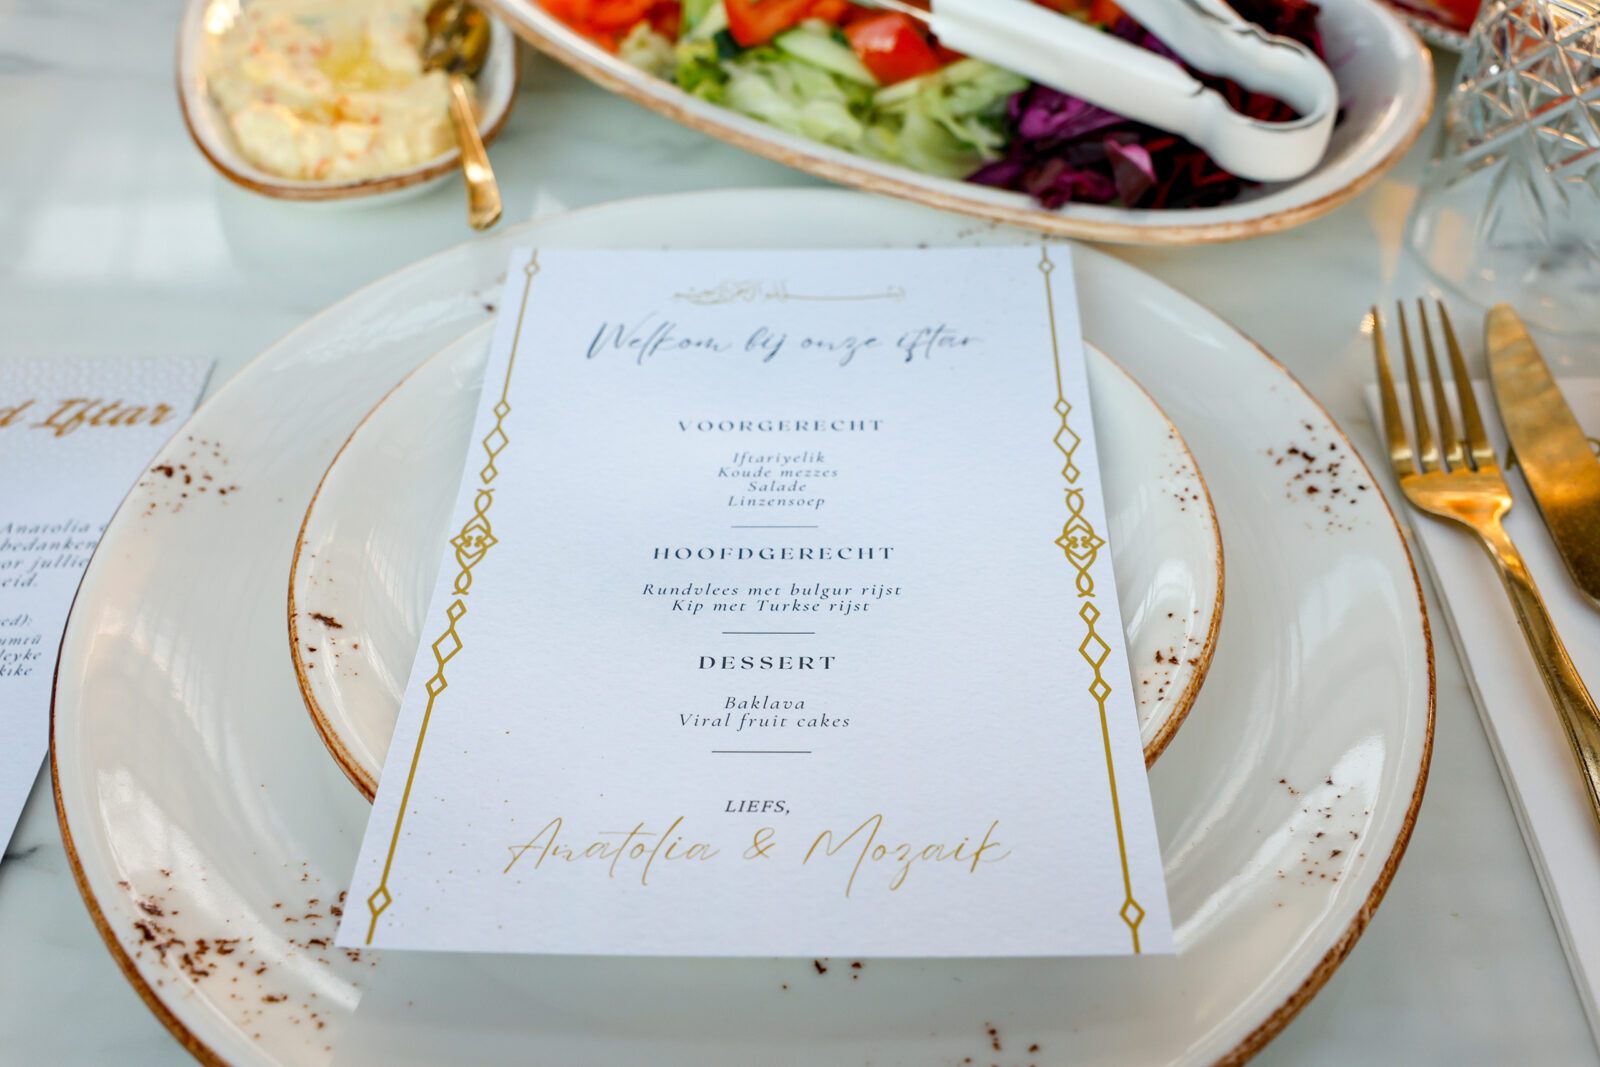 بسم الله الرحمن الرحيم
Welkom bij onze iftar
VOORGERECHT
Iftariyelik
Koude mezzes
Salade
Linzensoep
HOOFDGERECHT
Rundvlees met bulgur rijst
Kip met Turkse rijst
DESSERT
Baklava
Viral fruit cakes
LIEFS,
Anatolia & Mozaik
d Iftar
Anatolia
bedanken
or jullie
eid.
ed):
umtü
leyke
kike